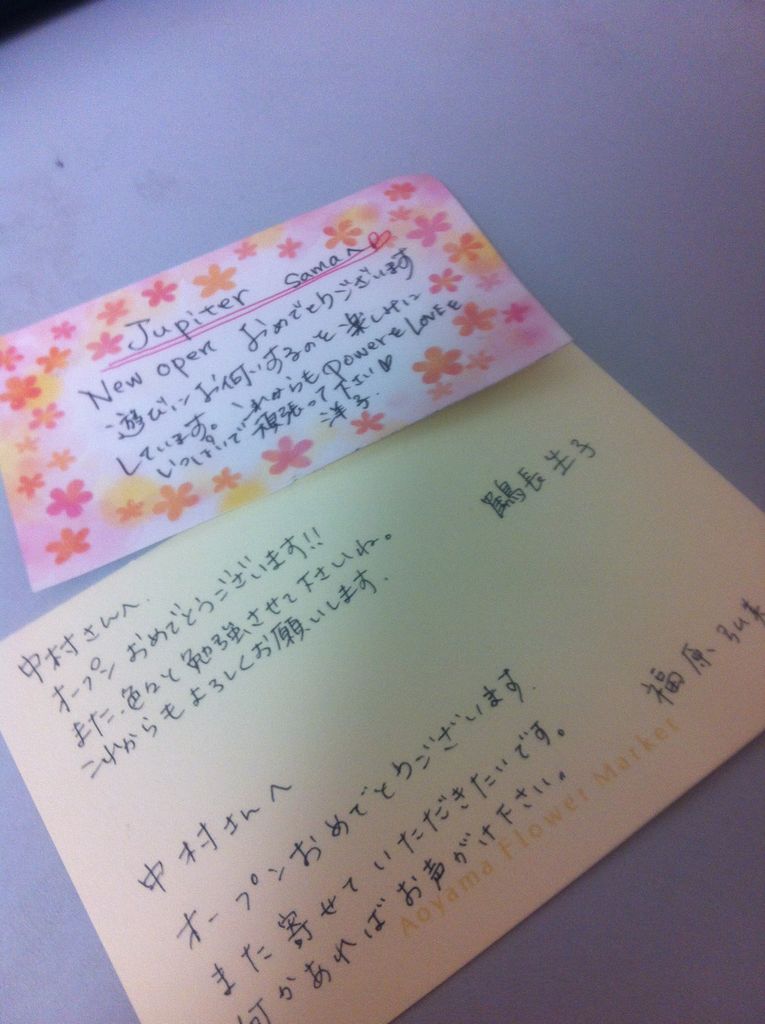 Jupiter samaへ♡
New open おめでとうございます
遊びにお伺いするのを楽しみに
しています。これからもpowerとLOVEを
いっぱいで頑張って下さい♡
洋子.
中村さんへ.
オープンおめでとうございます!!
また、色々と勉強させて下さいね。
これからもよろしくお願いします.
長生子
中村さんへ
オープンおめでとうございます.
また寄せていただきたいです。
何かあればお声がけ下さい。
福原
Aoyama Flower Market